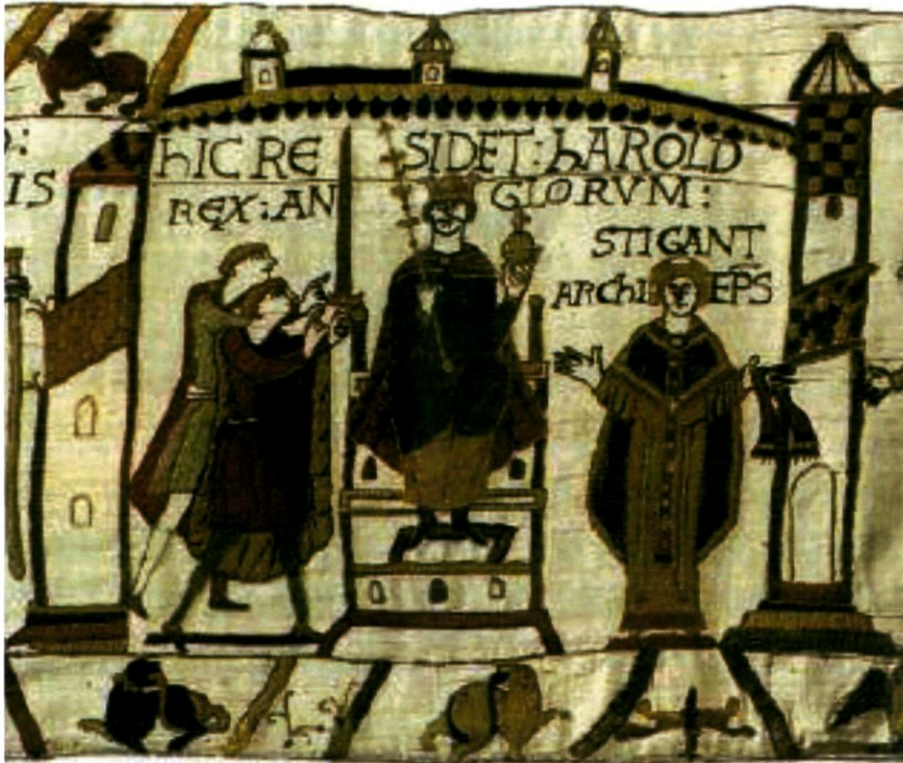 ): hIC RE SIDET: hAROLD
IS REX: AN GLORVM:
STIGANT
ARChI EPS